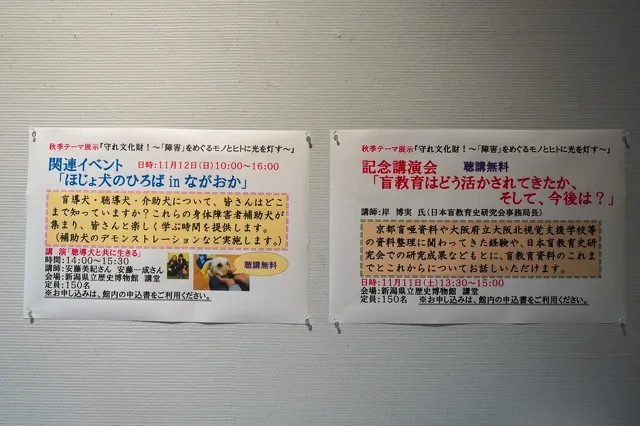 秋季テーマ展示『守れ文化財！～「障害」をめぐるモノとヒトに光を灯す～』
関連イベント 日時:11月12日(日)10:00～16:00
「ほじょ犬のひろば in ながおか」
盲導犬・聴導犬・介助犬について、皆さんはどこ
まで知っていますか？これらの身体障害者補助犬が
集まり、皆さんと楽しく学ぶ時間を提供します。
（補助犬のデモンストレーションなど実施します。）
講 演「聴導犬と共に生きる」
時間:14:00～15:30
講師:安藤美紀さん 安藤一成さん
会場:新潟県立歴史博物館 講堂
定員:150名
聴講無料
※お申し込みは、館内の申込書をご利用ください。
秋季テーマ展示『守れ文化財！～「障害」をめぐるモノとヒトに光を灯す～』
記念講演会 聴講無料
「盲教育はどう活かされてきたか、
そして、今後は？」
講師:岸 博実 氏(日本盲教育史研究会事務局長)
京都盲唖資料や大阪府立大阪北視覚支援学校等
の資料整理に関わってきた経験や、日本盲教育史研
究会での研究成果などもとに、盲教育資料のこれま
でとこれからについてお話しいただけます。
日時:11月11日(土)13:30～15:00
会場:新潟県立歴史博物館 講堂
定員:150名 ※お申し込みは、館内の申込書をご利用ください。